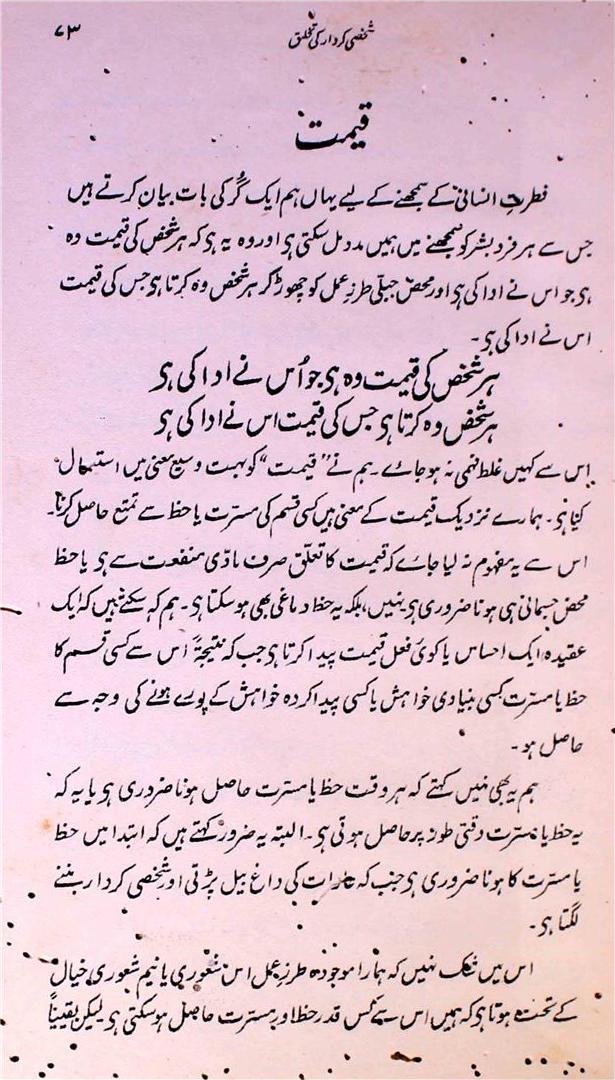 ۷۳
شخصی کردار کی تخلق
قیمت
فطرتِ انسانی کے سمجھنے کے لیے یہاں ہم ایک گُر کی بات بیان کرتے ہیں
جس سے ہر فرد بشر کو سمجھنے میں ہمیں مدد مل سکتی ہی اور وہ یہ ہی کہ ہر شخص کی قیمت وہ
ہی جو اس نے ادا کی ہی اور محض جبلی طرزِ عمل کو چھوڑ کر ہر شخص وہ کرتا ہی جس کی قیمت
اس نے ادا کی ہی ۔
ہر شخص کی قیمت وہ ہی جو اُس نے ادا کی ہی
ہر شخص وہ کرتا ہی جس کی قیمت اس نے ادا کی ہی
اس سے کہیں غلط فہمی نہ ہو جائے ۔ ہم نے ”قیمت“ کو بہت وسیع معنی میں استعمال
کیا ہی ۔ ہمارے نزدیک قیمت کے معنی ہیں کسی قسم کی مسترت یا حظ سے تمتع حاصل کرنا۔
اس سے یہ مفہوم نہ لیا جائے کہ قیمت کا تعلق صرف مادّی منفعت سے ہی یا حظ
محض جسمانی ہی ہونا ضروری ہی نہیں، بلکہ یہ حظ دماغی بھی ہو سکتا ہی ۔ ہم کہ سکتے ہیں کہ ایک
عقیدہ، ایک احساس یا کوئی فعل قیمت پیدا کرتا ہی جب کہ نتیجۃً اس سے کسی قسم کا
حظ یا مسترت کسی بنیادی خواہش یا کسی پیدا کردہ خواہش کے پورے ہونے کی وجہ سے
حاصل ہو ۔
ہم یہ بھی نہیں کہتے کہ ہر وقت حظ یا مسترت حاصل ہونا ضروری ہی یا یہ کہ
یہ حظ یا مسترت وقتی طور پر حاصل ہوتی ہی ۔ البتہ یہ ضرور کہتے ہیں کہ ابتدا میں حظ
یا مسترت کا ہونا ضروری ہی جب کہ عادات کی داغ بیل پڑتی اور شخصی کردار بننے
لگتا ہی ۔
اس میں شک نہیں کہ ہمارا موجودہ طرزِ عمل اس شعوری یا نیم شعوری خیال
کے تحت ہوتا ہی کہ ہمیں اس سے کس قدر حظ اور مسترت حاصل ہو سکتی ہی لیکن یقیناً